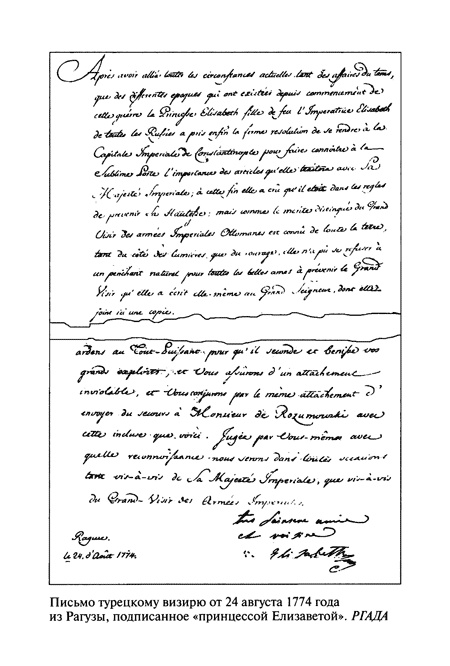 Après avoir allié toutes les circonstances actuelles tant des affaires du tems,
que des differentes epoques qui ont existées depuis commencement de
cette guerre la Princesse Elisabeth fille de feu l'Imperatrice Elisabeth
de toutes les Russies a pris enfin la ferme resolution de se rendre à la
Capitale Imperiale de Constantinople pour faire connoitre à la
Sublime Porte l'importance des articles qu'elle traitera avec Sa
Majesté Imperiale; à cette fin elle a cru qu'il etoit dans les regles
de prevenir Sa Hautesse: mais comme le merite distingué du Grand
Visir des armées Imperiales Ottomanes est connû de toute la terre,
tant du côté des lumieres, que du courage, elle n'a pû se refuser à
un penchant naturel pour toutes les belles ames à prévenir le Grand
Visir qu'elle a écrit elle-même au Grand Seigneur, dont elle
joint ici une copie.
ardens au Tout-Puissant pour qu'il seconde et benisse vos
grands exploits, et Vous assurons d'un attachement
inviolable, et Vous conjurons par le même attachement d'
envoyer du secours à Monsieur de Rozumowski avec
cette incluse que voici. Jugée par Vous-mêmes avec
quelle reconnoissance nous serons dans toutes occasions
tant vis-à-vis de Sa Majesté Imperiale, que vis-à-vis
du Grand-Visir des Armées Imperiales.
amie
et voisine
Raguse
Elisabeth
le 24. d'Août 1774.
Письмо турецкому визирю от 24 августа 1774 года
из Рагузы, подписанное «принцессой Елизаветой». РГАДА